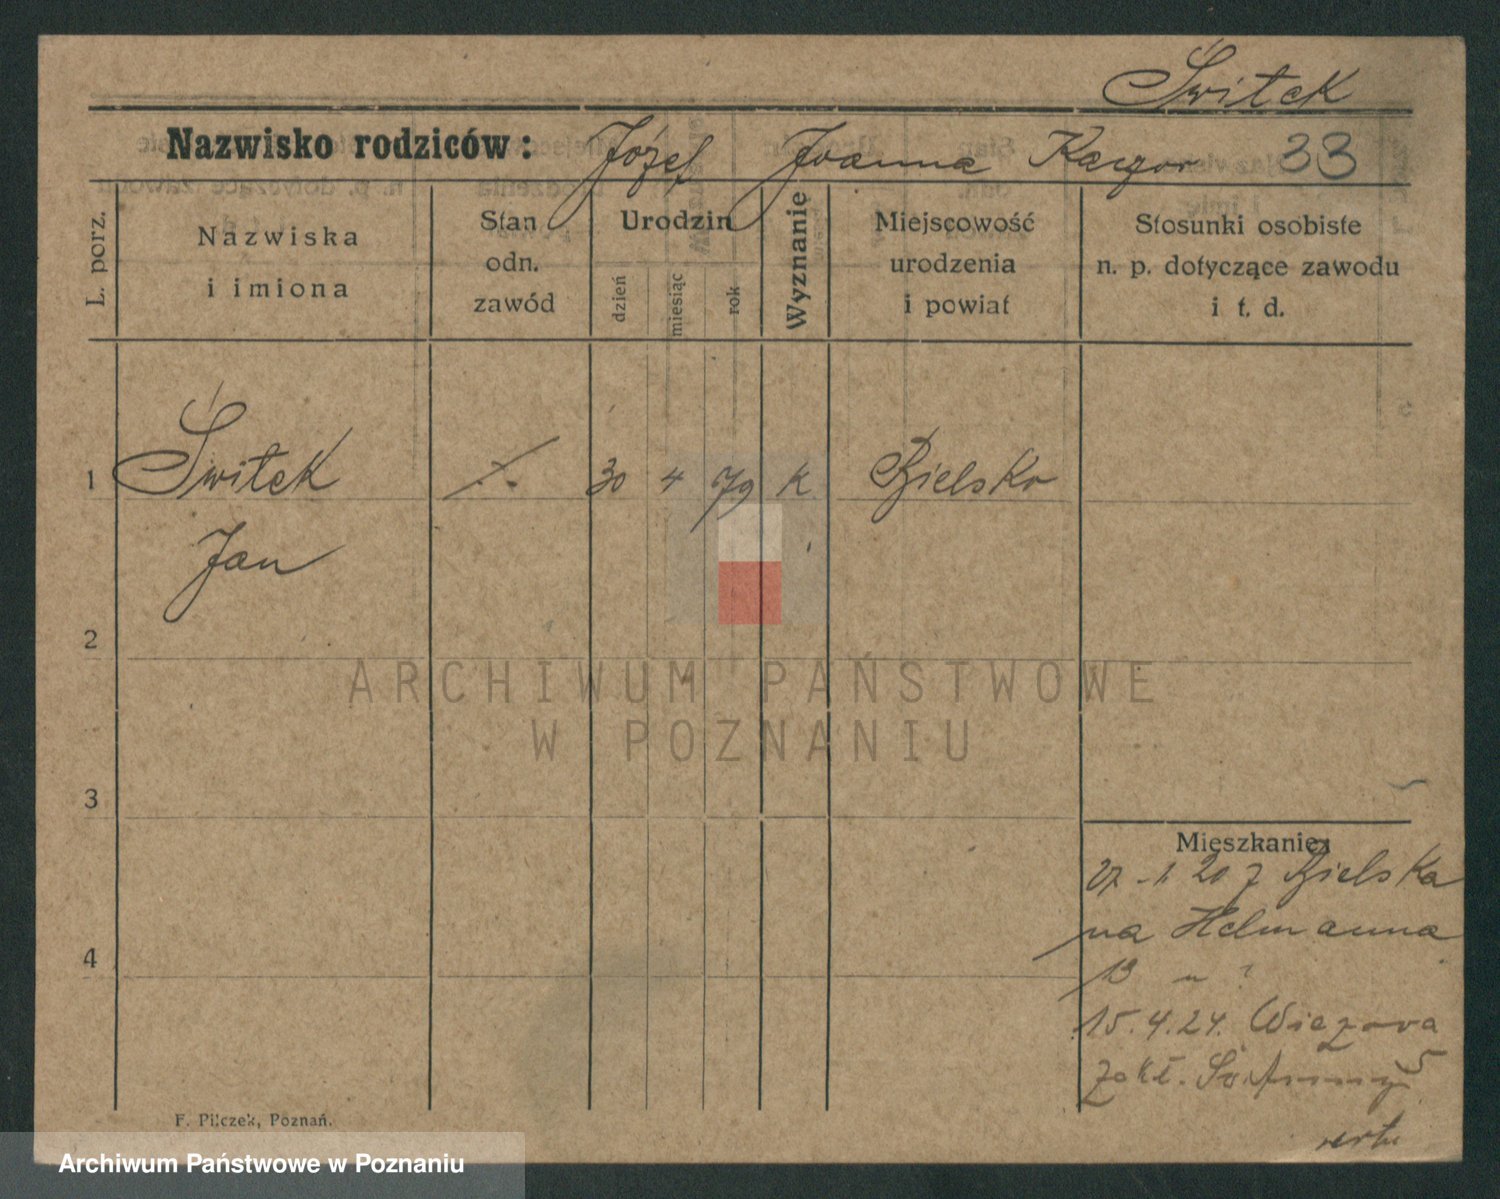 Świtek
Nazwisko rodziców: Józef Joanna Kaczor 33
L. porz.
Nazwiska
i imiona
Stan
odn.
zawód
Urodzin
dzień
miesiąc
rok
Wyznanie
Miejscowość
urodzenia
i powiat
Stosunki osobiste
n. p. dotyczące zawodu
i t. d.
1 Świtek 30 4 79 K Bielsko
Jan
2
3
4
Mieszkanie:
27.-1. 20 z Bielska
na Helmanna
13
15.4.24. Wiezowa 5
zakł.
F. Pilczek, Poznań.
ARCHIWUM PAŃSTWOWE
W POZNANIU
Archiwum Państwowe w Poznaniu